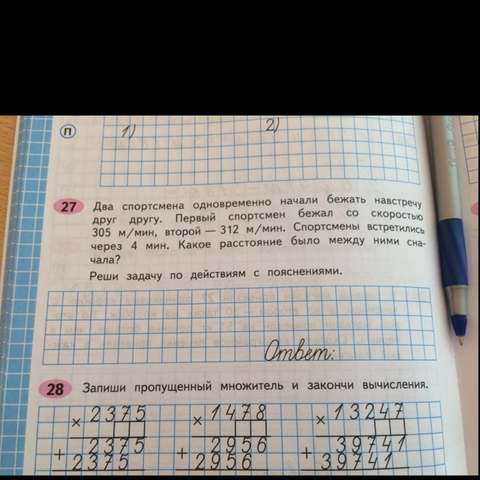 П 1) 2)
27 Два спортсмена одновременно начали бежать навстречу
друг другу. Первый спортсмен бежал со скоростью
305 м/мин, второй — 312 м/мин. Спортсмены встретились
через 4 мин. Какое расстояние было между ними сна-
чала?
Реши задачу по действиям с пояснениями.
Ответ:
28 Запиши пропущенный множитель и закончи вычисления.
× 2375 × 1478 × 13247
+ 2375 + 2956 + 39741
2375 2956 39741